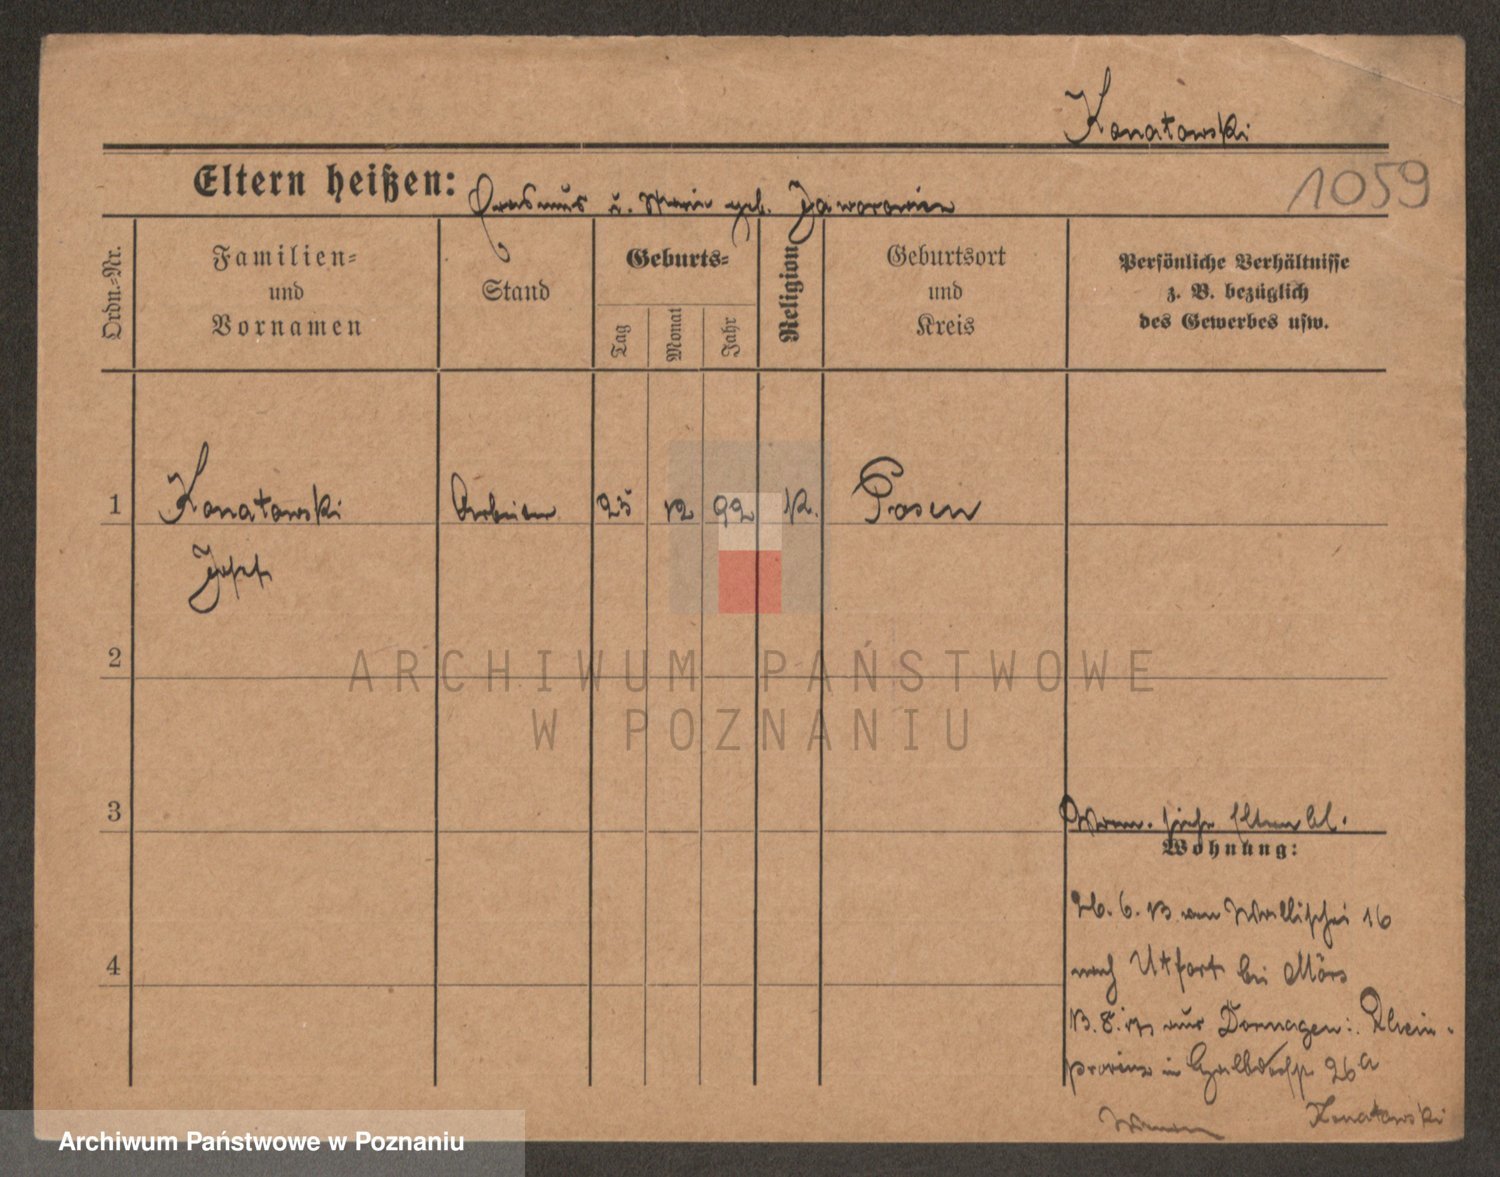 Konatowski
1059
Eltern heißen: Erasmus u. Marie geb. Jaworowicz
Ordn.-Nr.
Familien-
und
Vornamen
Stand
Geburts-
Tag
Monat
Jahr
Religion
Geburtsort
und
Kreis
Persönliche Verhältnisse
z. B. bezüglich
des Gewerbes usw.
1 Konatowski Arbeiter 25 12 92 K. Posen
Josef
2
ARCHIWUM PAŃSTWOWE
W POZNANIU
3
siehe Elternbl.
Wohnung:
26. 6. 13 von Wallischei 16
4
nach Utfort bei Mörs
13. 8. aus Dormagen Rhein-
provinz in 26a
Konatowski
Archiwum Państwowe w Poznaniu